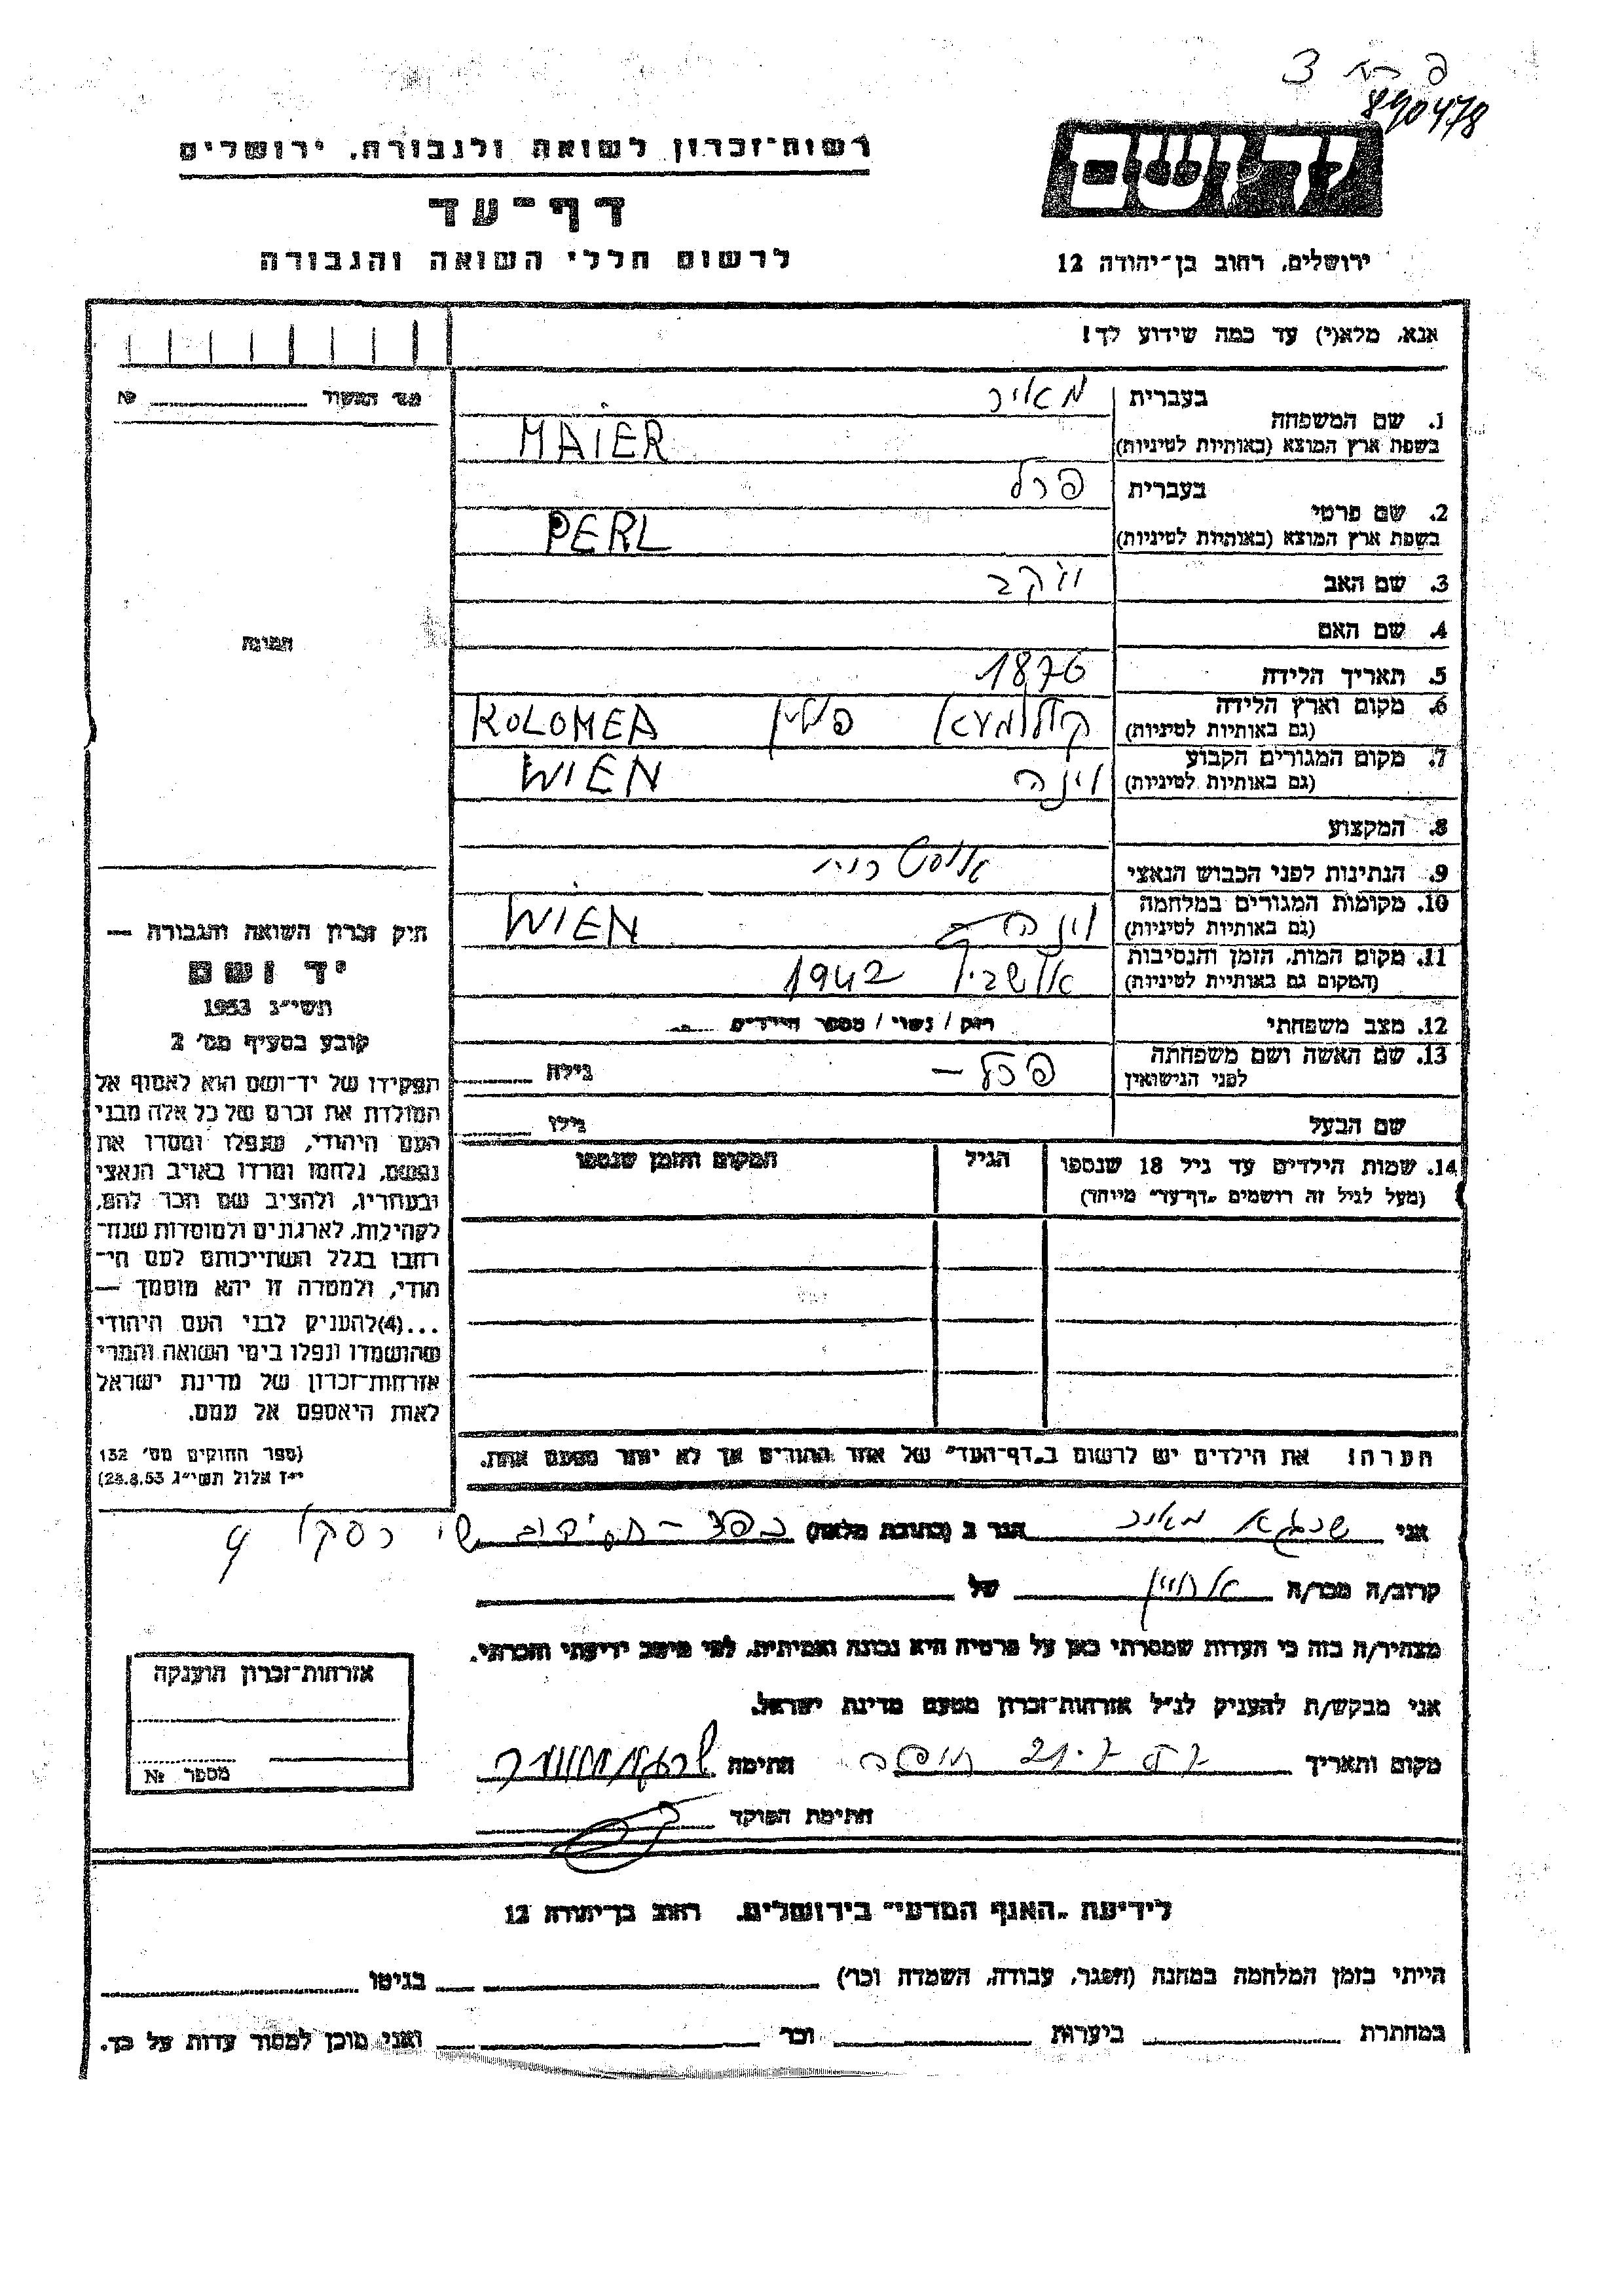 890478
רשות־זכרון לשואה ולגבורה, ירושלים
דף־עד
לרשום חללי השואה והגבורה
יד ושם
ירושלים, רחוב בן־יהודה 12
אנא, מלא(י) עד כמה שידוע לך!
מס' האשור № 
1. שם המשפחה
בעברית מאיר
בשפת ארץ המוצא (באותיות לטיניות) MAIER
2. שם פרטי
בעברית פרל
בשפת ארץ המוצא (באותיות לטיניות) PERL
3. שם האב יעקב
4. שם האם
תמונה
5. תאריך הלידה 1876
6. מקום וארץ הלידה
(גם באותיות לטיניות) פולין KOLOMEA
7. מקום המגורים הקבוע
(גם באותיות לטיניות) וינה WIEN
8. המקצוע
9. הנתינות לפני הכבוש הנאצי אוסטרית
10. מקומות המגורים במלחמה
(גם באותיות לטיניות) וינה WIEN
11. מקום המות, הזמן והנסיבות
(המקום גם באותיות לטיניות) אושביץ 1942
12. מצב משפחתי רווק / נשוי / מספר הילדים
13. שם האשה ושם משפחתה
לפני הנישואין פרל — גילה
שם הבעל גילו
14. שמות הילדים עד גיל 18 שנספו הגיל המקום והזמן שנספו
(מעל לגיל זה רושמים „דף־עד" מיוחד)
הערה! את הילדים יש לרשום ב„דף־העד" של אחד ההורים אך לא יותר מפעם אחת.
חוק זכרון השואה והגבורה —
יד ושם
תשי"ג 1953
קובע בסעיף מס' 2
תפקידו של יד־ושם הוא לאסוף אל
המולדת את זכרם של כל אלה מבני
העם היהודי, שנפלו ומסרו את
נפשם, נלחמו ומרדו באויב הנאצי
ובעוזריו, ולהציב שם וזכר להם,
לקהילות, לארגונים ולמוסדות שנח־
רבו בגלל השתייכותם לעם הי־
הודי, ולמטרה זו יהא מוסמך —
...(4) להעניק לבני העם היהודי
שהושמדו ונפלו בימי השואה והמרי
אזרחות־זכרון של מדינת ישראל
לאות היאספם אל עמם.
(ספר החוקים מס' 132
י"ז אלול תשי"ג 28.8.53)
אני מאיר הגר ב (כתובת מלאה) 4
קרוב/ה מכר/ה של
מצהיר/ה בזה כי העדות שמסרתי כאן על פרטיה היא נכונה ואמיתית, לפי מיטב ידיעתי והכרתי.
אני מבקש/ת להעניק לנ"ל אזרחות־זכרון מטעם מדינת ישראל.
מקום ותאריך חתימה
חתימת הפוקד
אזרחות־זכרון הוענקה
מספר №
לידיעת „האגף המדעי" בירושלים, רחוב בן־יהודה 12
הייתי בזמן המלחמה במחנה (הסגר, עבודה, השמדה וכו') בגיטו
במחתרת ביערות וכו' ואני מוכן למסור עדות על כך.